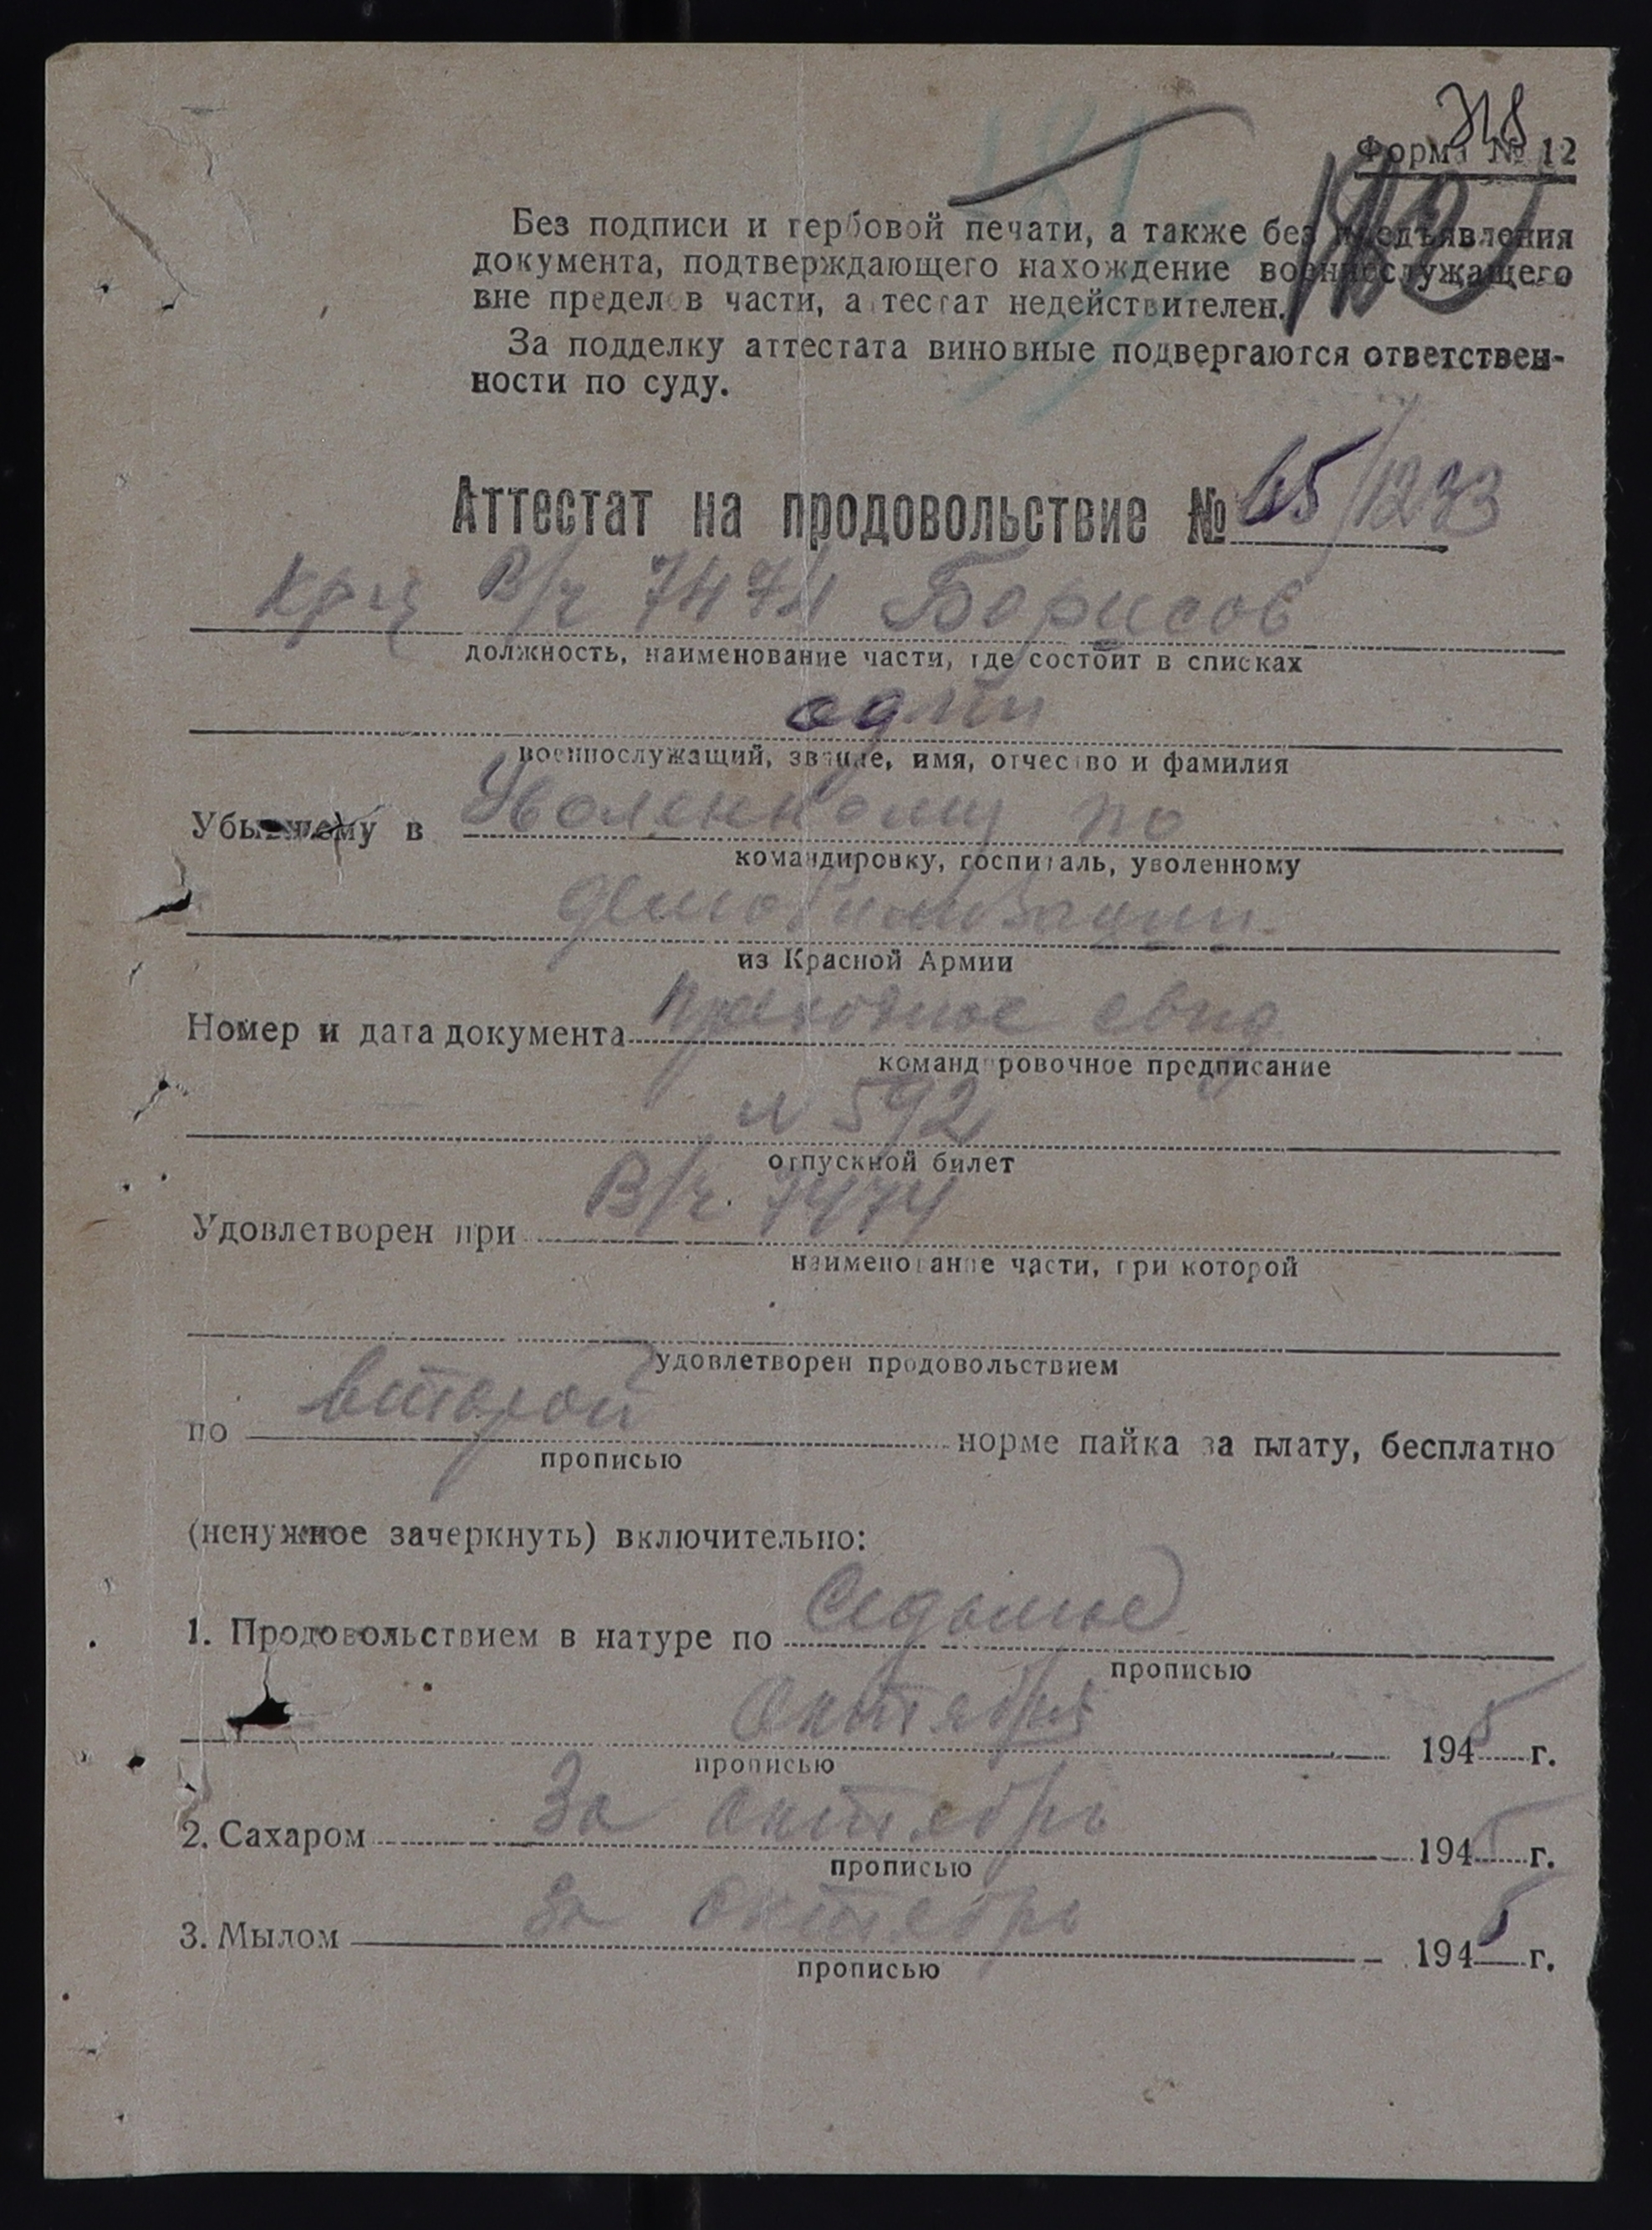 318
Форма № 12
Без подписи и гербовой печати, а также без предъявления
документа, подтверждающего нахождение военнослужащего
вне пределов части, аттестат недействителен.
За подделку аттестата виновные подвергаются ответствен-
ности по суду.
Аттестат на продовольствие № 65/1293
Кр-ц В/ч 7474 Борисов
должность, наименование части, где состоит в списках
один
военнослужащий, звание, имя, отчество и фамилия
Убывшему в Уволенному по
командировку, госпиталь, уволенному
демобилизации
из Красной Армии
Номер и дата документа проходное свид
командировочное предписание
N 592
отпускной билет
Удовлетворен при В/ч. 7474
наименование части, при которой
удовлетворен продовольствием
по второй норме пайка за плату, бесплатно
прописью
(ненужное зачеркнуть) включительно:
1. Продовольствием в натуре по Седьмое
прописью
Октября 1945 г.
прописью
2. Сахаром За октябрь 1945 г.
прописью
3. Мылом За октябрь 1945 г.
прописью